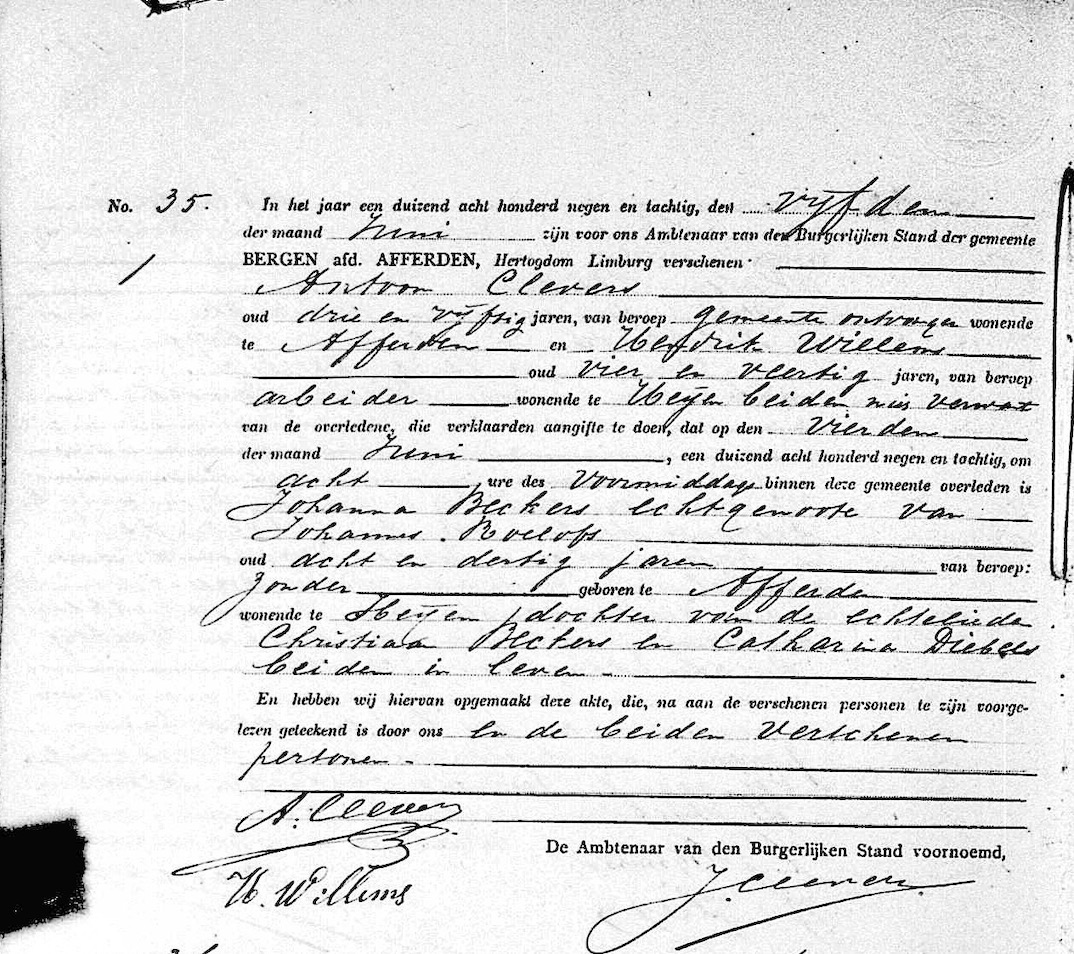 No. 35. In het jaar een duizend acht honderd negen en tachtig, den vijfden
der maand Juni zijn voor ons Ambtenaar van den Burgerlijken Stand der gemeente
BERGEN afd. AFFERDEN, Hertogdom Limburg verschenen
Antoon Clevers
oud drie en vijftig jaren, van beroep gemeente ontvanger wonende
te Afferden en Hendrik Willems
oud vier en veertig jaren, van beroep
arbeider wonende te Heijen beiden niet verwant
van de overledene, die verklaarden aangifte te doen, dat op den vierden
der maand Juni, een duizend acht honderd negen en tachtig, om
acht ure des Voormiddags binnen deze gemeente overleden is
Johanna Beckers echtgenoote van
Johannes Roelofs
oud acht en dertig jaren van beroep:
Zonder geboren te Afferden
wonende te Heijen, dochter van de echtelieden
Christiaan Beckers en Catharina Diebels
beiden in leven.
En hebben wij hiervan opgemaakt deze akte, die, na aan de verschenen personen te zijn voorge-
lezen geteekend is door ons en de beiden verschenen
personen.
A. Clevers
De Ambtenaar van den Burgerlijken Stand voornoemd,
H. Willems